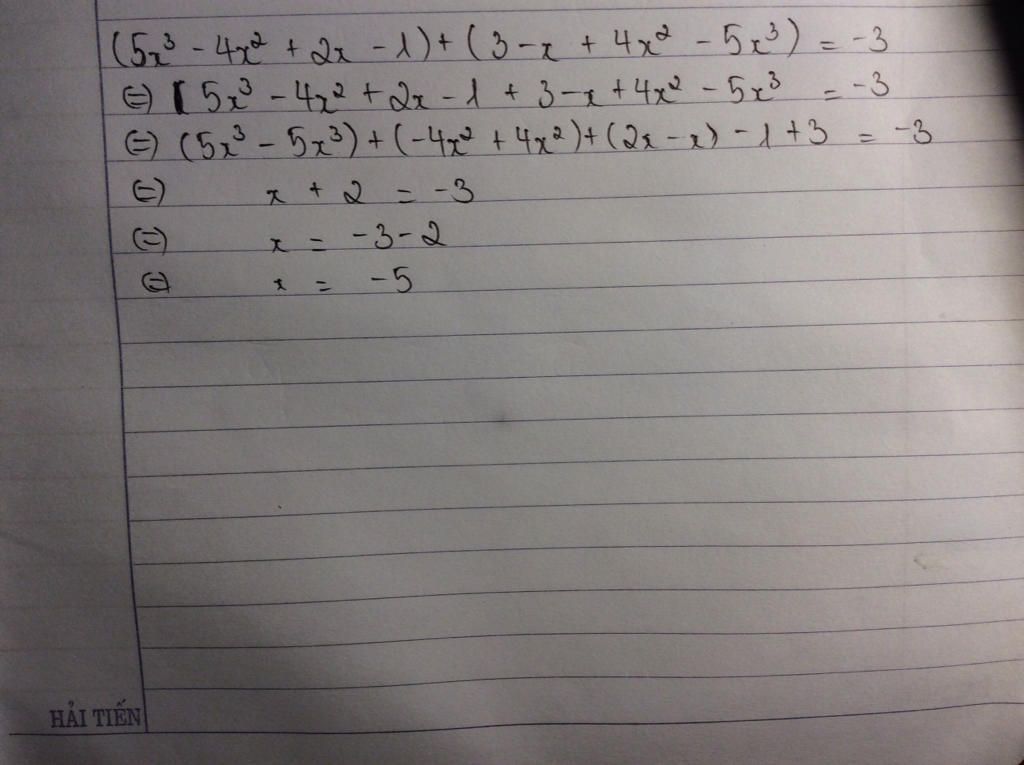 (5x³ - 4x² + 2x - 1) + (3 - x + 4x² - 5x³) = -3
⇔ 5x³ - 4x² + 2x - 1 + 3 - x + 4x² - 5x³ = -3
⇔ (5x³ - 5x³) + (-4x² + 4x²) + (2x - x) - 1 + 3 = -3
⇔ x + 2 = -3
⇔ x = -3 - 2
⇔ x = -5
HẢI TIẾN